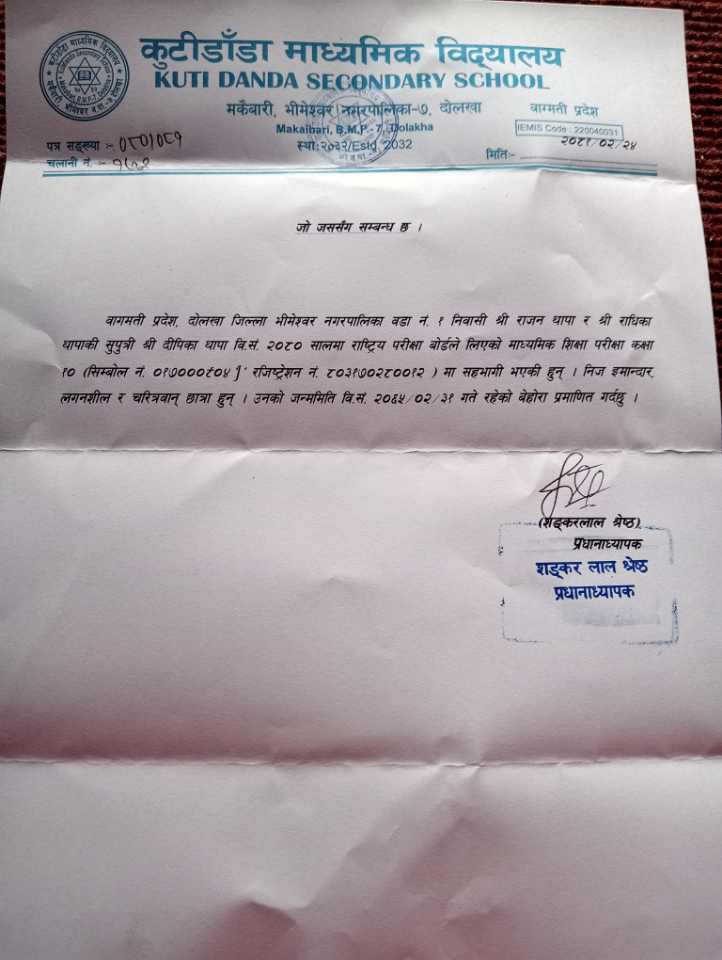 कुटीडाँडा माध्यमिक विद्यालय
KUTI DANDA SECONDARY SCHOOL
मकैबारी, भीमेश्वर नगरपालिका-७, दोलखा वाग्मती प्रदेश
Makaibari, B.M.P.-7, Dolakha IEMIS Code : 220040031
स्था: २०३२/Estd. 2032
पत्र सङ्ख्या :- ०८०/०८१ मिति:- २०८१/०२/२४
चलानी नं. :-
जो जससँग सम्बन्ध छ ।
वागमती प्रदेश, दोलखा जिल्ला भीमेश्वर नगरपालिका वडा नं. १ निवासी श्री राजन थापा र श्री राधिका
थापाकी सुपुत्री श्री दीपिका थापा वि.सं. २०८० सालमा राष्ट्रिय परीक्षा बोर्डले लिएको माध्यमिक शिक्षा परीक्षा कक्षा
१० (सिम्बोल नं. रजिष्ट्रेशन नं. ) मा सहभागी भएकी हुन् । निज इमान्दार,
लगनशील र चरित्रवान् छात्रा हुन् । उनको जन्ममिति वि.सं. २०६५/०२/३१ गते रहेको बेहोरा प्रमाणित गर्दछु ।
(शङ्करलाल श्रेष्ठ)
प्रधानाध्यापक
शङ्कर लाल श्रेष्ठ
प्रधानाध्यापक